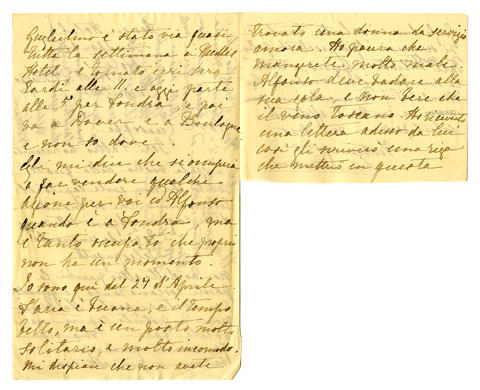 Guglielmo è stato via quasi
tutta la settimana a Needles
Hotel e tornato ieri sera
tardi alle 11, e oggi parte
alle 5 per Londra e poi
va a Dover e a Boulogne
e non so dove.
Egli mi dice che si occupera
a far vendere qualche
azione per voi ed Alfonso
quando è a Londra, ma
è tanto occupato che proprio
non ha un momento.
Io sono qui dal 27 d'Aprile
L'aria è buona, e il tempo
bello, ma è un posto molto
solitario, e molto incomodo.
Mi dispiace che non avete
trovato una donna da servizio
ancora. Ho paura che
mangerete molto male.
Alfonso deve badare alla
sua gola, e non bere che
il vino toscano. Ho ricevuto
una lettera adesso da lui
così gli scriverò una riga
che metterò in questa